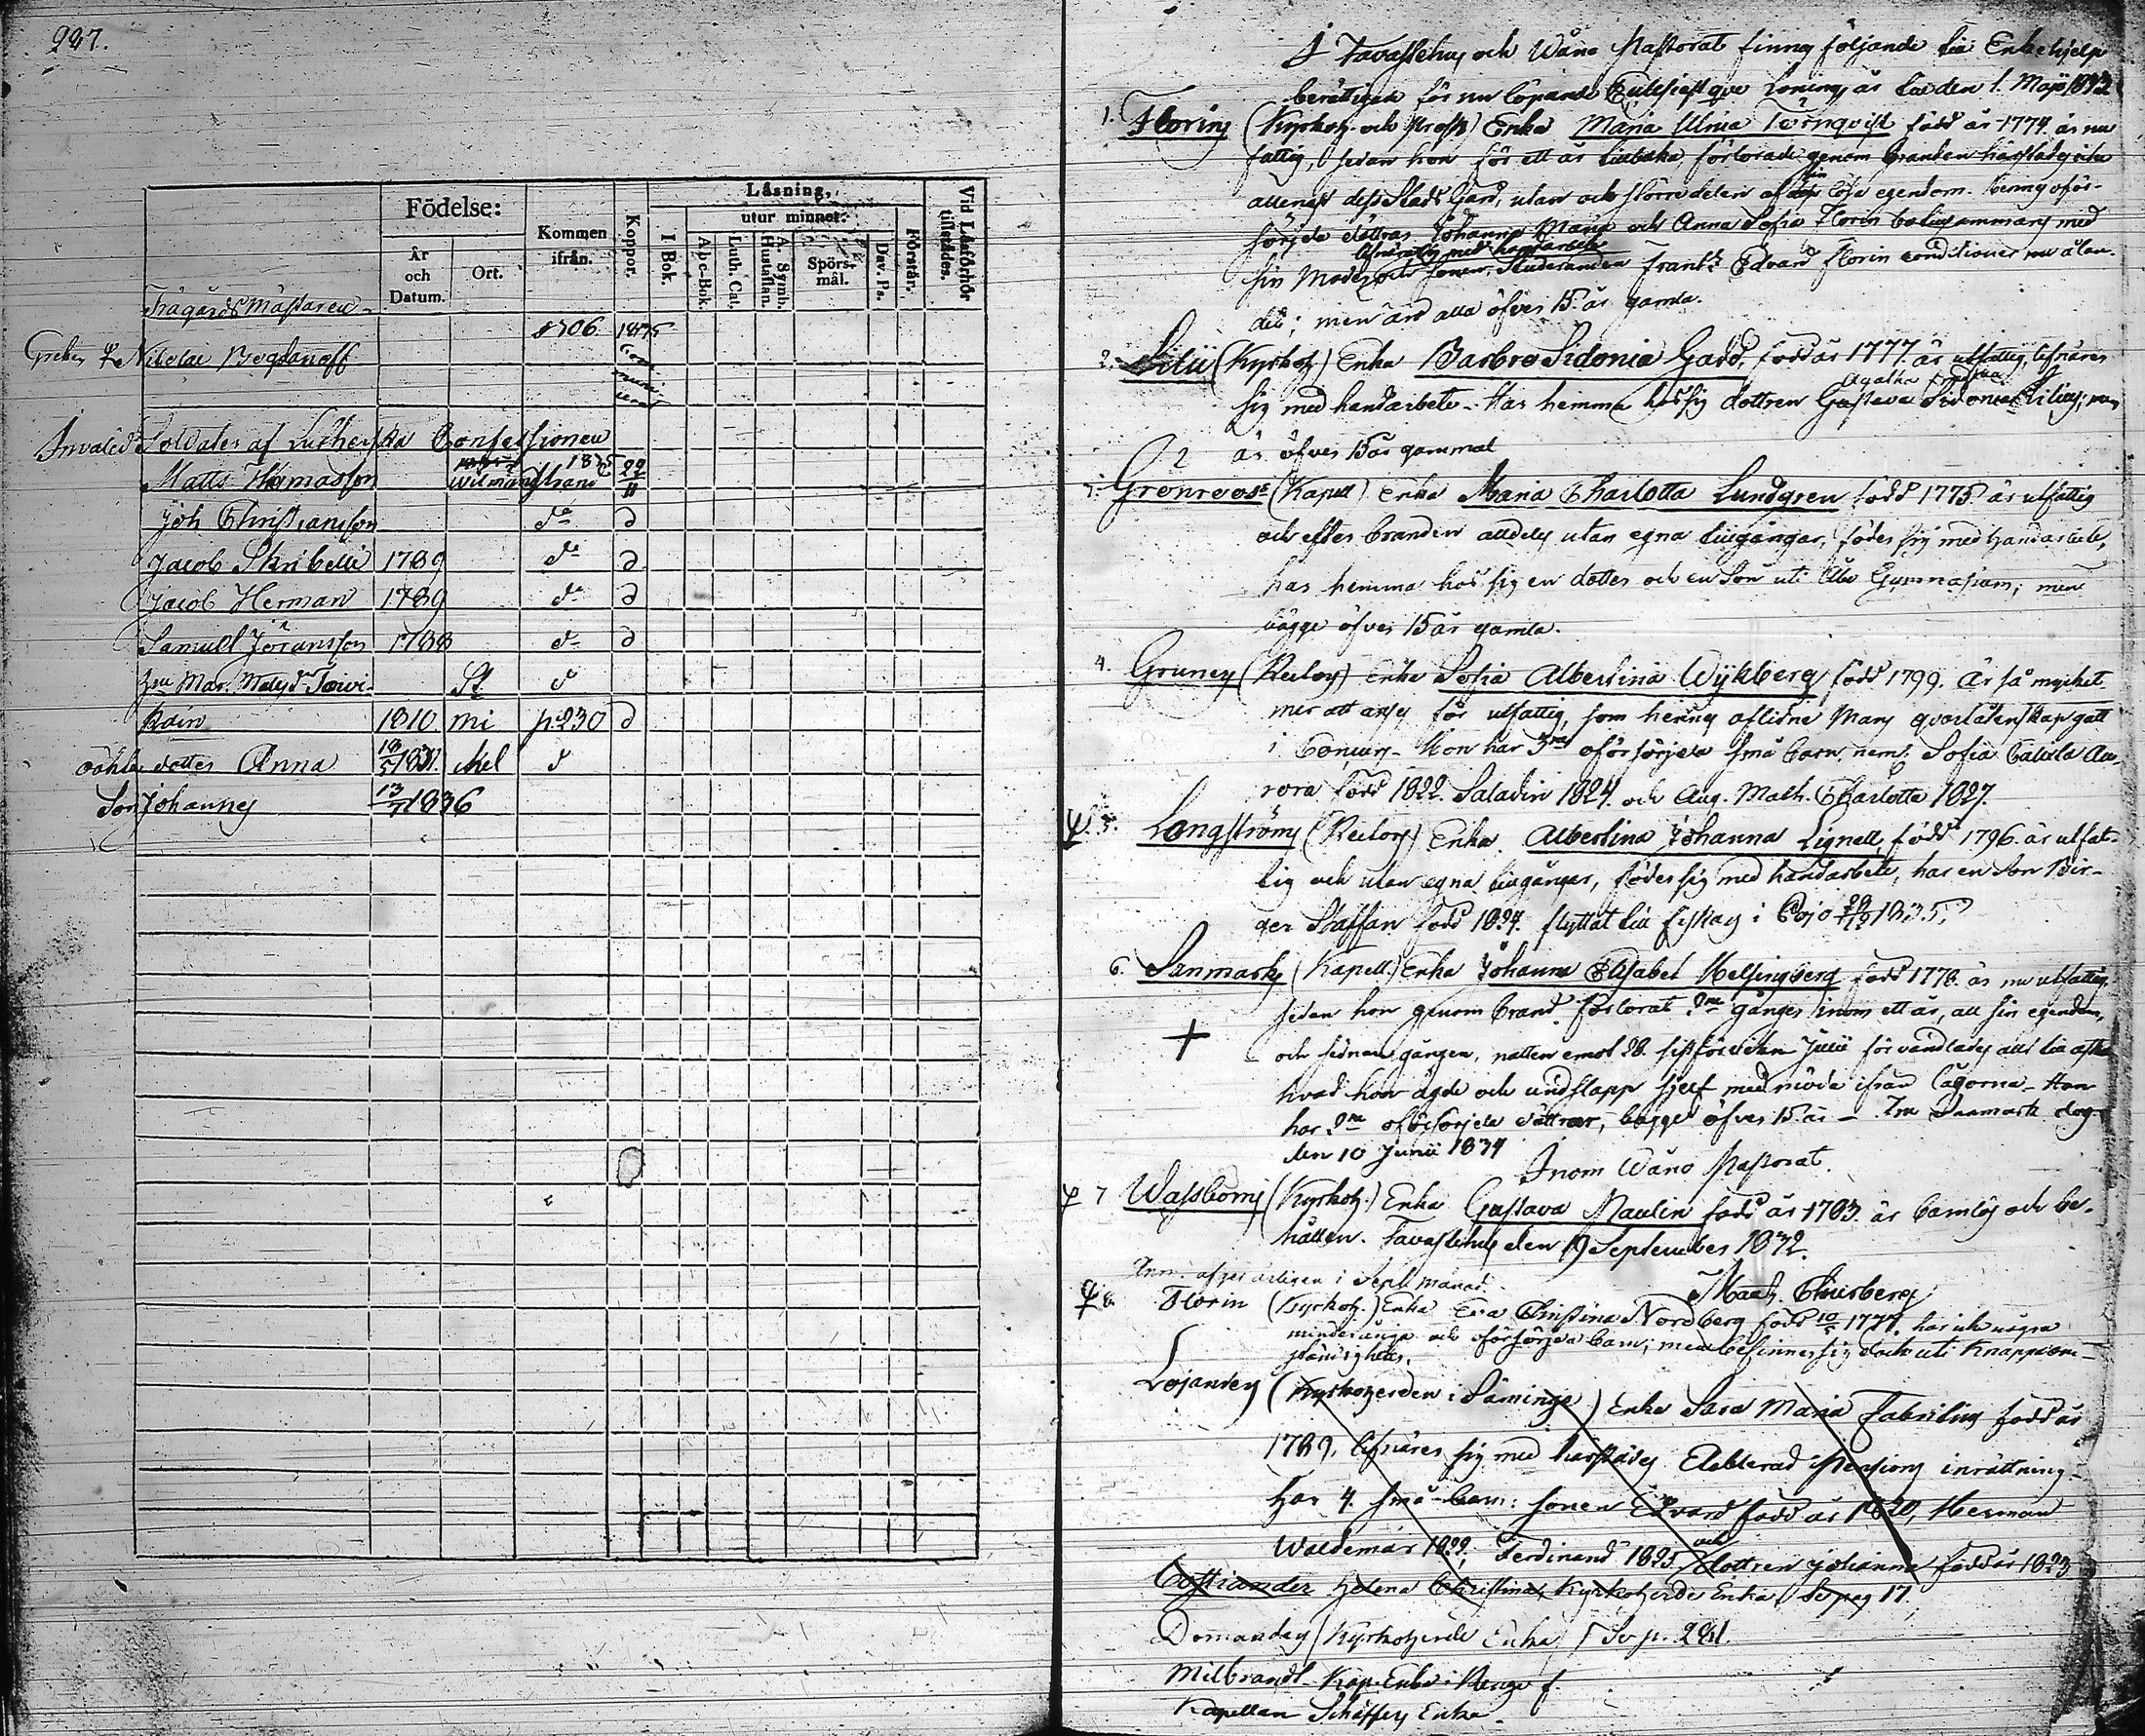 227.
Födelse:
År och Datum.
Ort.
Kommen ifrån.
Koppor.
Läsning,
I Bok.
utur minnet:
Abc-Bok.
Luth. Cat.
A. Symb. Hustaflan.
Spörs-mål.
Dav. Ps.
Förstår.
Vid Läsförhör tillstädes.
Trägårds Mästaren
Nicolai Bogdanoff 1835
Invalid Soldater af Lutherska Confessionen
Matts Thomasson Wilmanstrand 1835 22/11
Joh Christiansson do d
Jacob Skribelli 1789 do d
Jacob Herman 1789 do d
Samuel Jöransson 1788 do d
hu Mar. Matsdr Toivi-
kain 1810 mi p. 230 d
oächta dotter Anna 18/5 1831.
Son Johannes 13/7 1836
I Tavastehus och Wånå Pastorat finnas följande till Enkehjelp
berättigade för nu löpande Ecclesiastique Conings år till den 1. Maji 1833
1. Florins (Kyrkoh. och Prosts) Enka Maria Ulrica Törnqvist född år 1774. är nu
fattig, sedan hon för ett år tillbaka förlorade genom branden härstädes icke
allenast dess Stads Gård, utan ock större delen af sin lösa egendom. hennes oför-
sörjda döttrar Johanna Maria och Anna Sofia Florin bo tillsammans med
lifnära sig med handarbete
sin Moder och sonen Studeranden Frants Edvard Florin conditionerar nu å lan-
det; men äro alla öfver 15. år gamla.
2. Lilii (Kyrkoh.) Enka Barbro Sidonia Gadd, född år 1777. är utfattig, lifnärer
Agatha Fredrika
sig med handarbete - Har hemma hos sig dottren Gustava Sidonia Lilius; men
är öfver 15 år gammal
3. Grönroos (Kapell.) Enka Maria Charlotta Lundgren född 1775. är utfattig
och efter branden alldeles utan egna tillgångar, föder sig med handarbete,
har hemma hos sig en dotter och en Son uti Åbo Gymnasium; men
bägge öfver 15 år gamla.
4. Grunes (Rectors) Enka Sofia Albertina Wykberg född 1799. Är så mycket
mer att anses för utfattig, som hennes aflidne Mans qvarlåtenskap gått
i Concurs - Hon har 3ne oförsörjda små barn, neml. Sofia Au-
rora född 1822. Saladin 1824. och Aug. Math. Charlotta 1827.
5. Långströms (Rectors) Enka. Albertina Johanna Lignell, född 1796. är utfat-
tig och utan egna tillgångar, föder sig med handarbete, har en Son Bir-
ger Staffan född 1824. flyttat till Fiskars i Pojo 1835.
6. Sanmarks (Kapell.) Enka Johanna Elisabet Helsingberg född 1778. är nu utfattig,
sedan hon genom brand förlorat 2ne gånger inom ett år, all sin egendom,
och sednare gången, natten emot 28. sistförviken Julii förvandlades allt till aska
hvad hon ägde och undslapp sjelf med möda ifrån lågorna - Hon
har 2ne oförsörjda döttrar, bägge öfver 15. år - Fru Sanmark dog
den 10 Junii 1834
Inom Wånå Pastorat.
7 Wassboms (Kyrkoh.) Enka Gustava Paulin född år 1783. är barnlös och be-
hållen. Tavastehus den 19 September 1832.
Anm. afges årligen i Sept. månad.
8. Florin (Kyrkoh.) Enka Eva Christina Nordberg född 10/5 1777. har icke några
minderåriga och oförsörjda barn; men befinner sig dock uti knappom-
ständigheter.
Lojanders (Kyrkoherden i Säminge) Enka Sara Maria Fabritius född år
1789, lifnärer sig med härstädes Etablerad Pensions inrättning -
har 4. små barn: sonen Edvard född år 1820, Herman
Waldemar 1822, Ferdinand 1825 och dottren Johanna född år 1823
Costiander Helena Christina, Kyrkoherde Enka, Se pag 17.
Domanders Kyrkoherde Enka, Se p. 281.
Milbrandt - Kap. Enka
Kapellan Schäffers Enka.